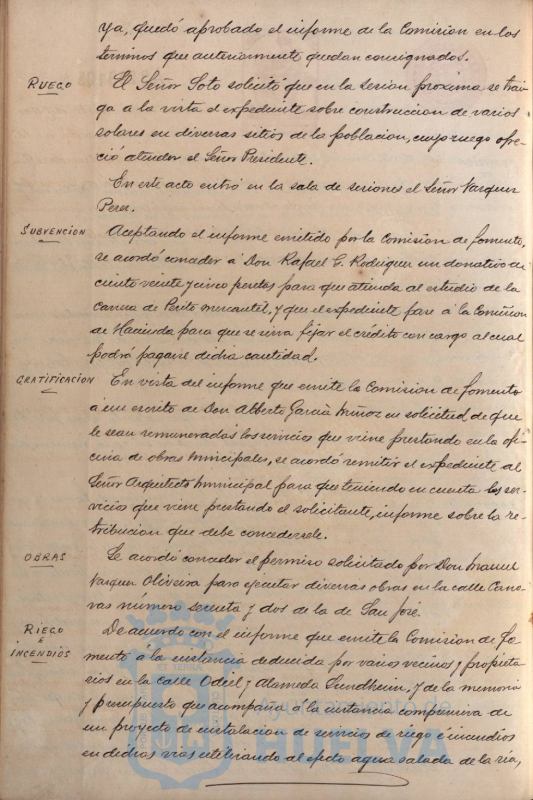 ya, quedó aprobado el informe de la Comision en los
terminos que anteriormente quedan consignados.
RUEGO
El Señor Soto solicitó que en la sesion proxima se trai-
ga a la vista el expediente sobre construccion de varios
solares en diversos sitios de la poblacion, cuyo ruego ofre-
ció atender el Señor Presidente.
En este acto entró en la sala de sesiones el Señor Vazquez
Perez.
SUBVENCION
Aceptando el informe emitido por la Comision de fomento,
se acordó conceder á Don Rafael G. Rodriguez un donativo de
ciento veinte y cinco pesetas para que atienda al estudio de la
carrera de Perito mercantil, y que el expediente pase á la Comision
de Hacienda para que se sirva fijar el crédito con cargo al cual
podrá pagarse dicha cantidad.
GRATIFICACION
En vista del informe que emite la Comision de fomento
á un escrito de Don Alberto García Muñoz en solicitud de que
le sean remunerados los servicios que viene prestando en la ofi-
cina de obras municipales, se acordó remitir el expediente al
Señor Arquitecto municipal para que teniendo en cuenta los ser-
vicios que viene prestando el solicitante, informe sobre la re-
tribucion que debe concedersele.
OBRAS
Se acordó conceder el permiso solicitado por Don Manuel
Vazquez Oliveira para ejecutar diversas obras en la calle Cane-
vas número sesenta y dos de la de San José.
RIEGO
É
INCENDIOS
De acuerdo con el informe que emite la Comision de fo-
mento á la instancia deducida por varios vecinos y propieta-
rios en la calle Odiel y Alameda Sundheim, y de la memoria
y presupuesto que acompaña á la instancia comprensiva de
un proyecto de instalacion de servicios de riego é incendios
en dichas vias utilizando al efecto agua salada de la ria,
Ayuntamiento de
HUELVA